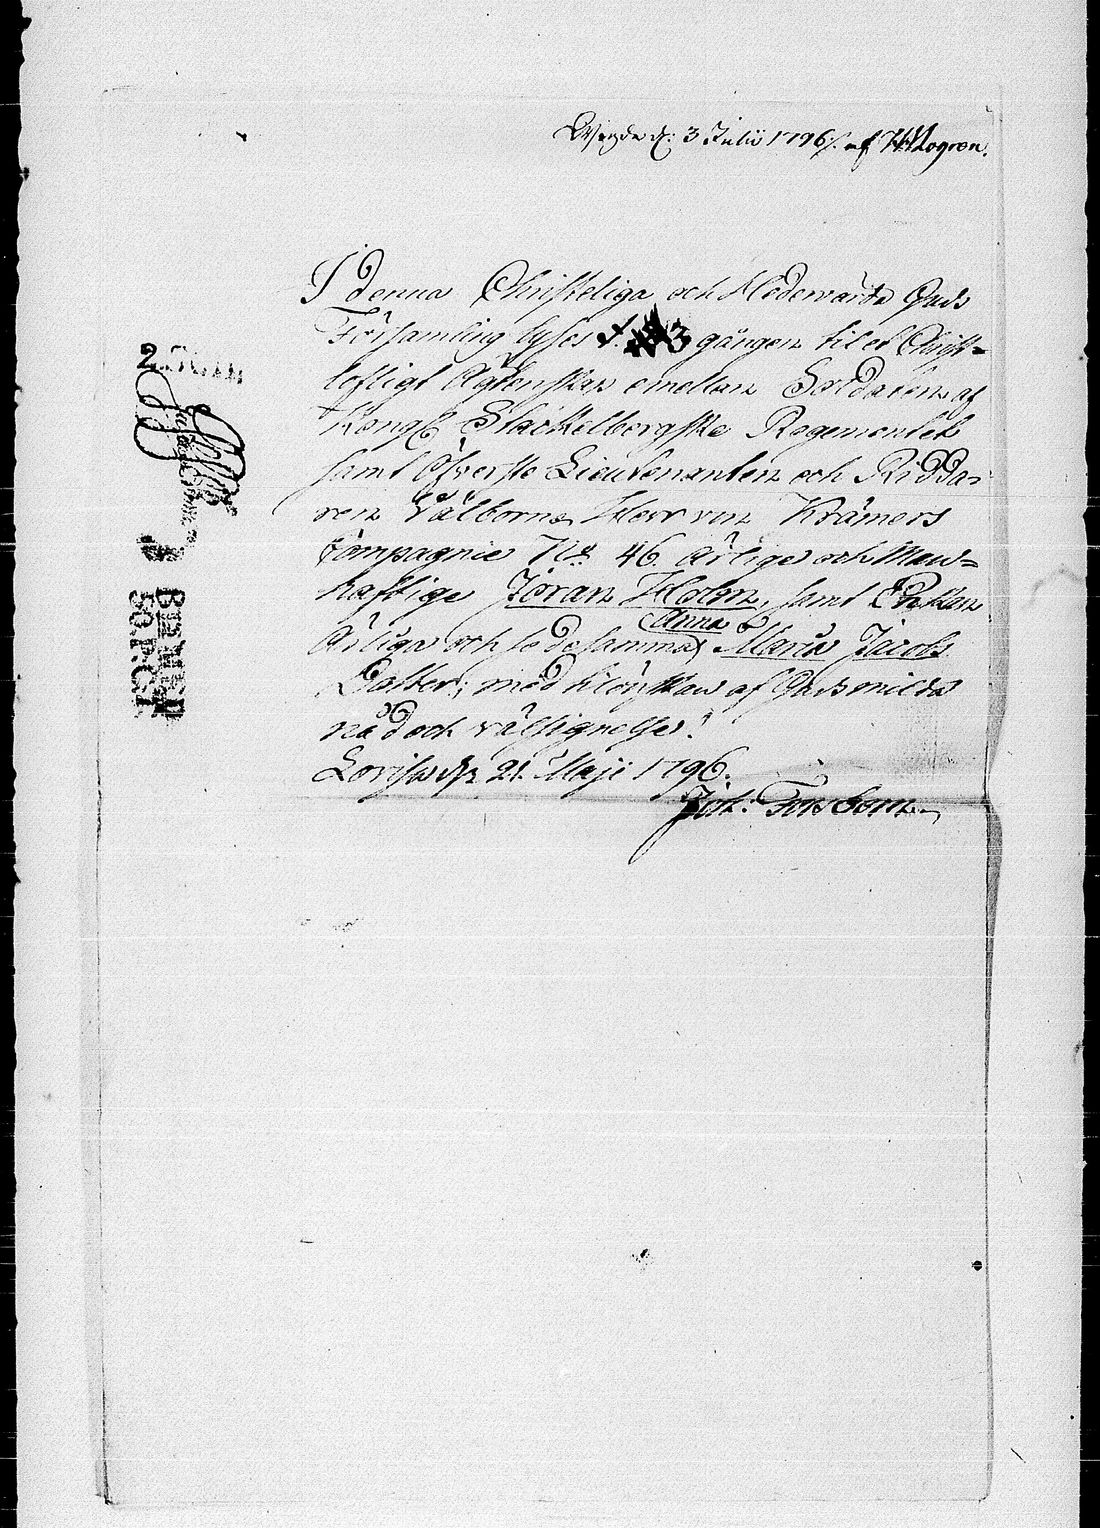 Wigde d: 3 Julii 1796 /. af
I denna Christeliga och Hedervärda Guds
Församling lyses 1. 3 gången til et Christ=
teligt Ägtenskap emellan Soldaten af
Kongl. Stackelbergska Regementet
samt Öfverste Lieutenanten och Ridda=
ren Välborne Herr von Krämers
Compagnie No 46 ärlige och Man=
haftige Jöran Holm, samt Enkan
Anna
ärliga och Maria Jacobs
Dotter; med af Guds milda
nåd och välsignelse!
Lovisa d. 21. Maji 1796.
Joh: Forsbom
2